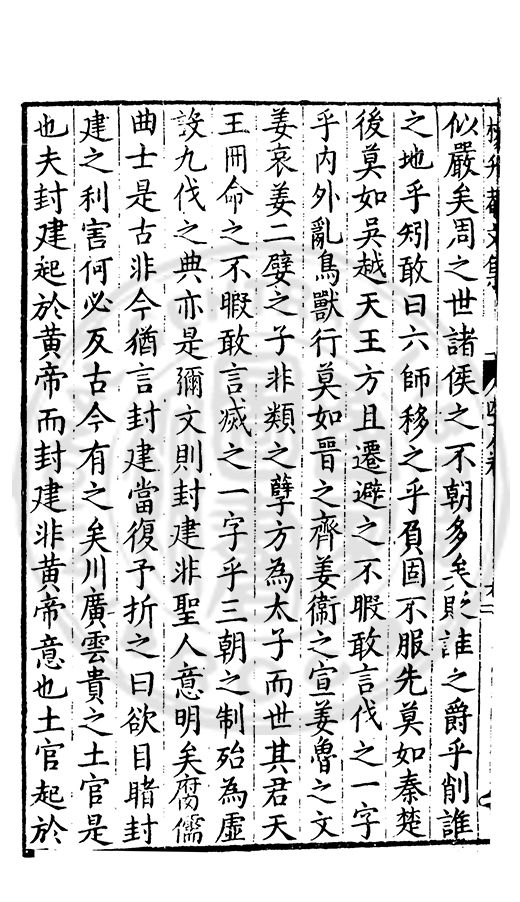 似嚴矣周之世諸侯之不朝多矣貶誰之爵乎削誰
之地乎矧敢曰六師移之乎負固不服先莫如秦楚
後莫如吳越天王方且遷避之不暇敢言伐之一字
乎內外亂鳥獸行莫如晉之齊姜衞之宣姜魯之文
姜哀姜二嬖之子非類之孽方為太子而世其君天
王冊命之不暇敢言滅之一字乎三朝之制殆為虛
設九伐之典亦是彌文則封建非聖人意明矣腐儒
曲士是古非今猶言封建當復予折之曰欲目睹封
建之利害何必反古今有之矣川廣雲貴之土官是
也夫封建起於黃帝而封建非黃帝意也土官起於